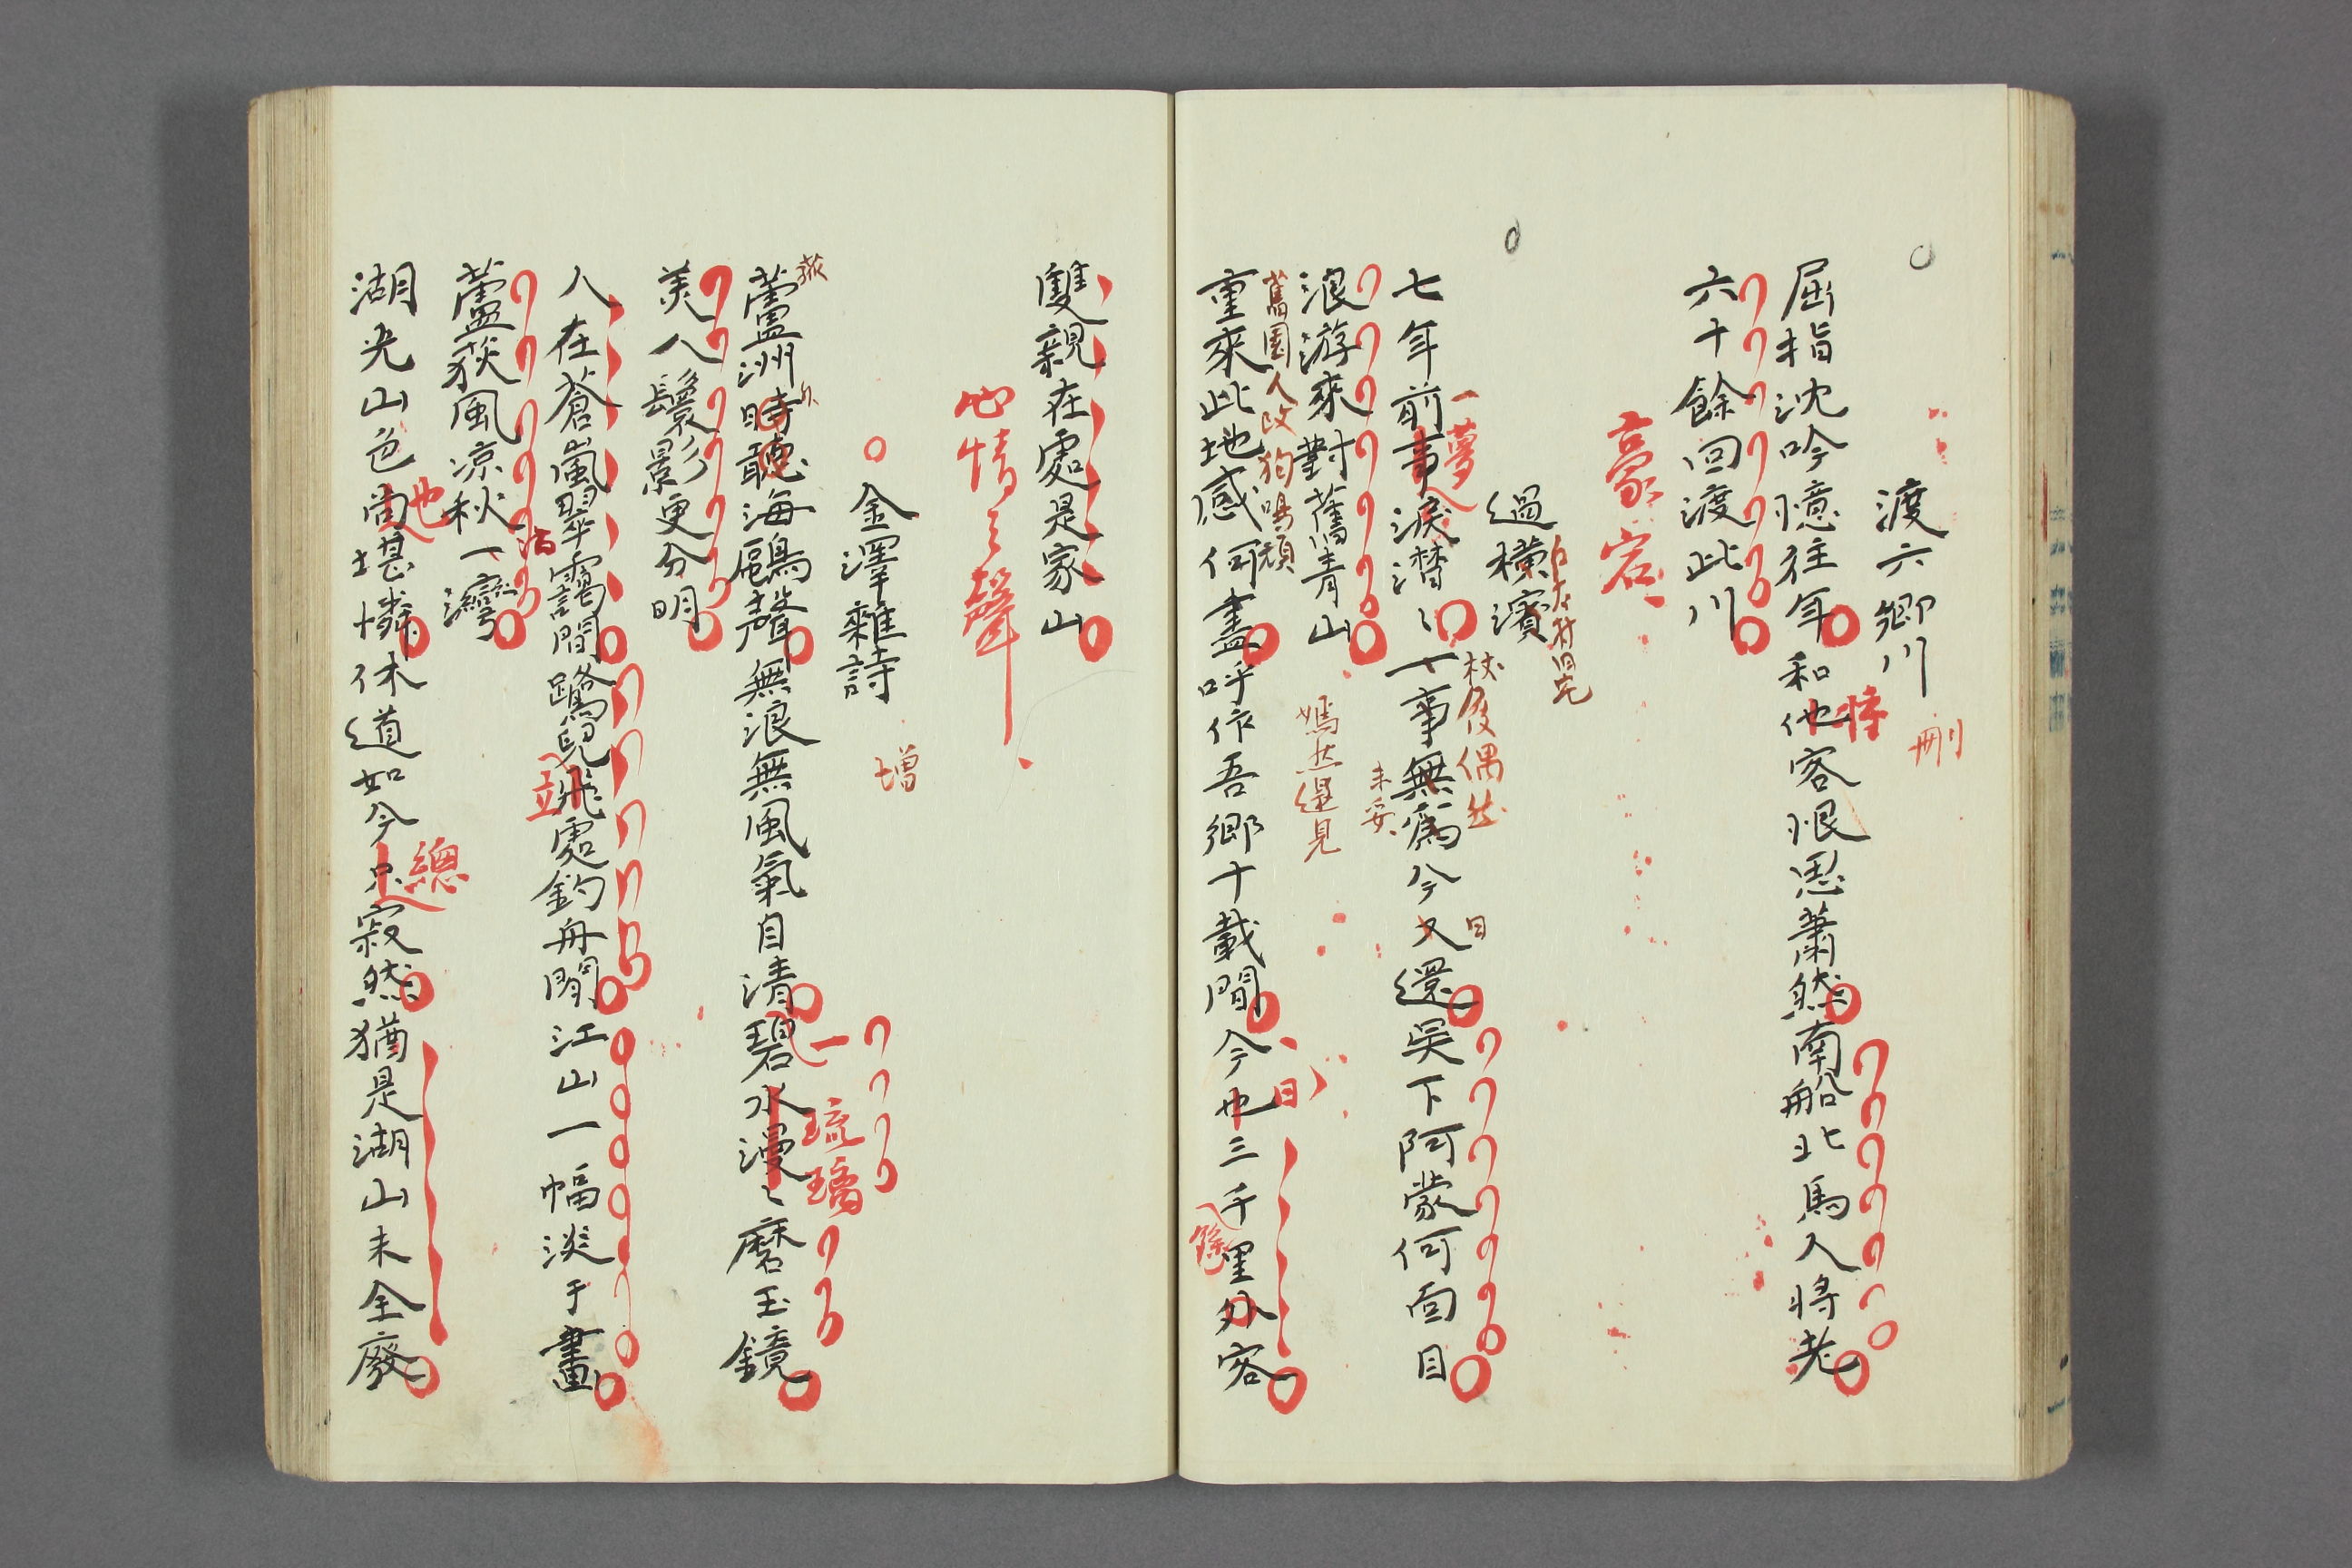 渡六郷川
刪
屈指沈吟憶往年和他客恨思蕭然南船北馬人將老
悽
六十餘回渡此川
豪宕
過橫濱
七年前事淚潸〻一事無爲今又還吳下阿蒙何面目
一夢
枝後偶然
日
未妥
浪游來對舊青山
嫣然還見
舊園人改狗鳴頑
重來此地感何盡呼作吾鄉十載間今也三千里外客
日
餘
雙親在處是家山
心情之聲
金澤雜詩
增
蘆洲時聽海鷗聲無浪無風氣自清碧水漫〻磨玉鏡
荻
一
琉璃
美人鬟影更分明
人在蒼嵐翠靄間鷺兒飛處釣舟閒江山一幅淡于畫
立
蘆荻風凉秋一灣
滿
湖光山色尚堪憐休道如今只寂然猶是湖山未全廢
也
總